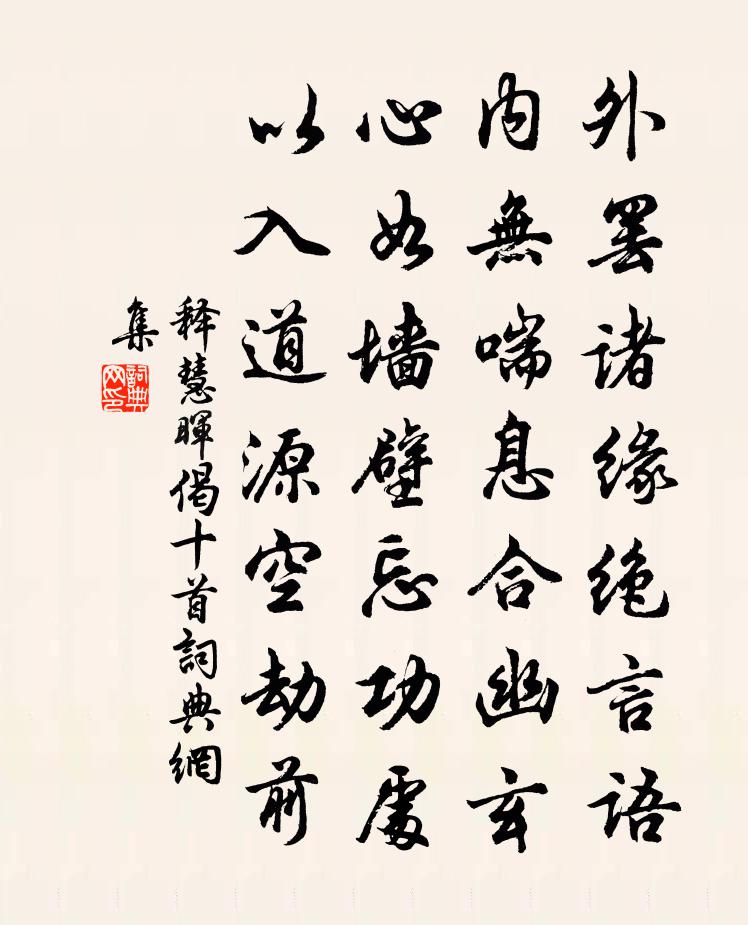 外罢諸缘绝言語
内無喘息合幽玄
心如墙壁忘功處
以入道源空劫前
释慧暉偈十首詞典網
集
詞典
网印